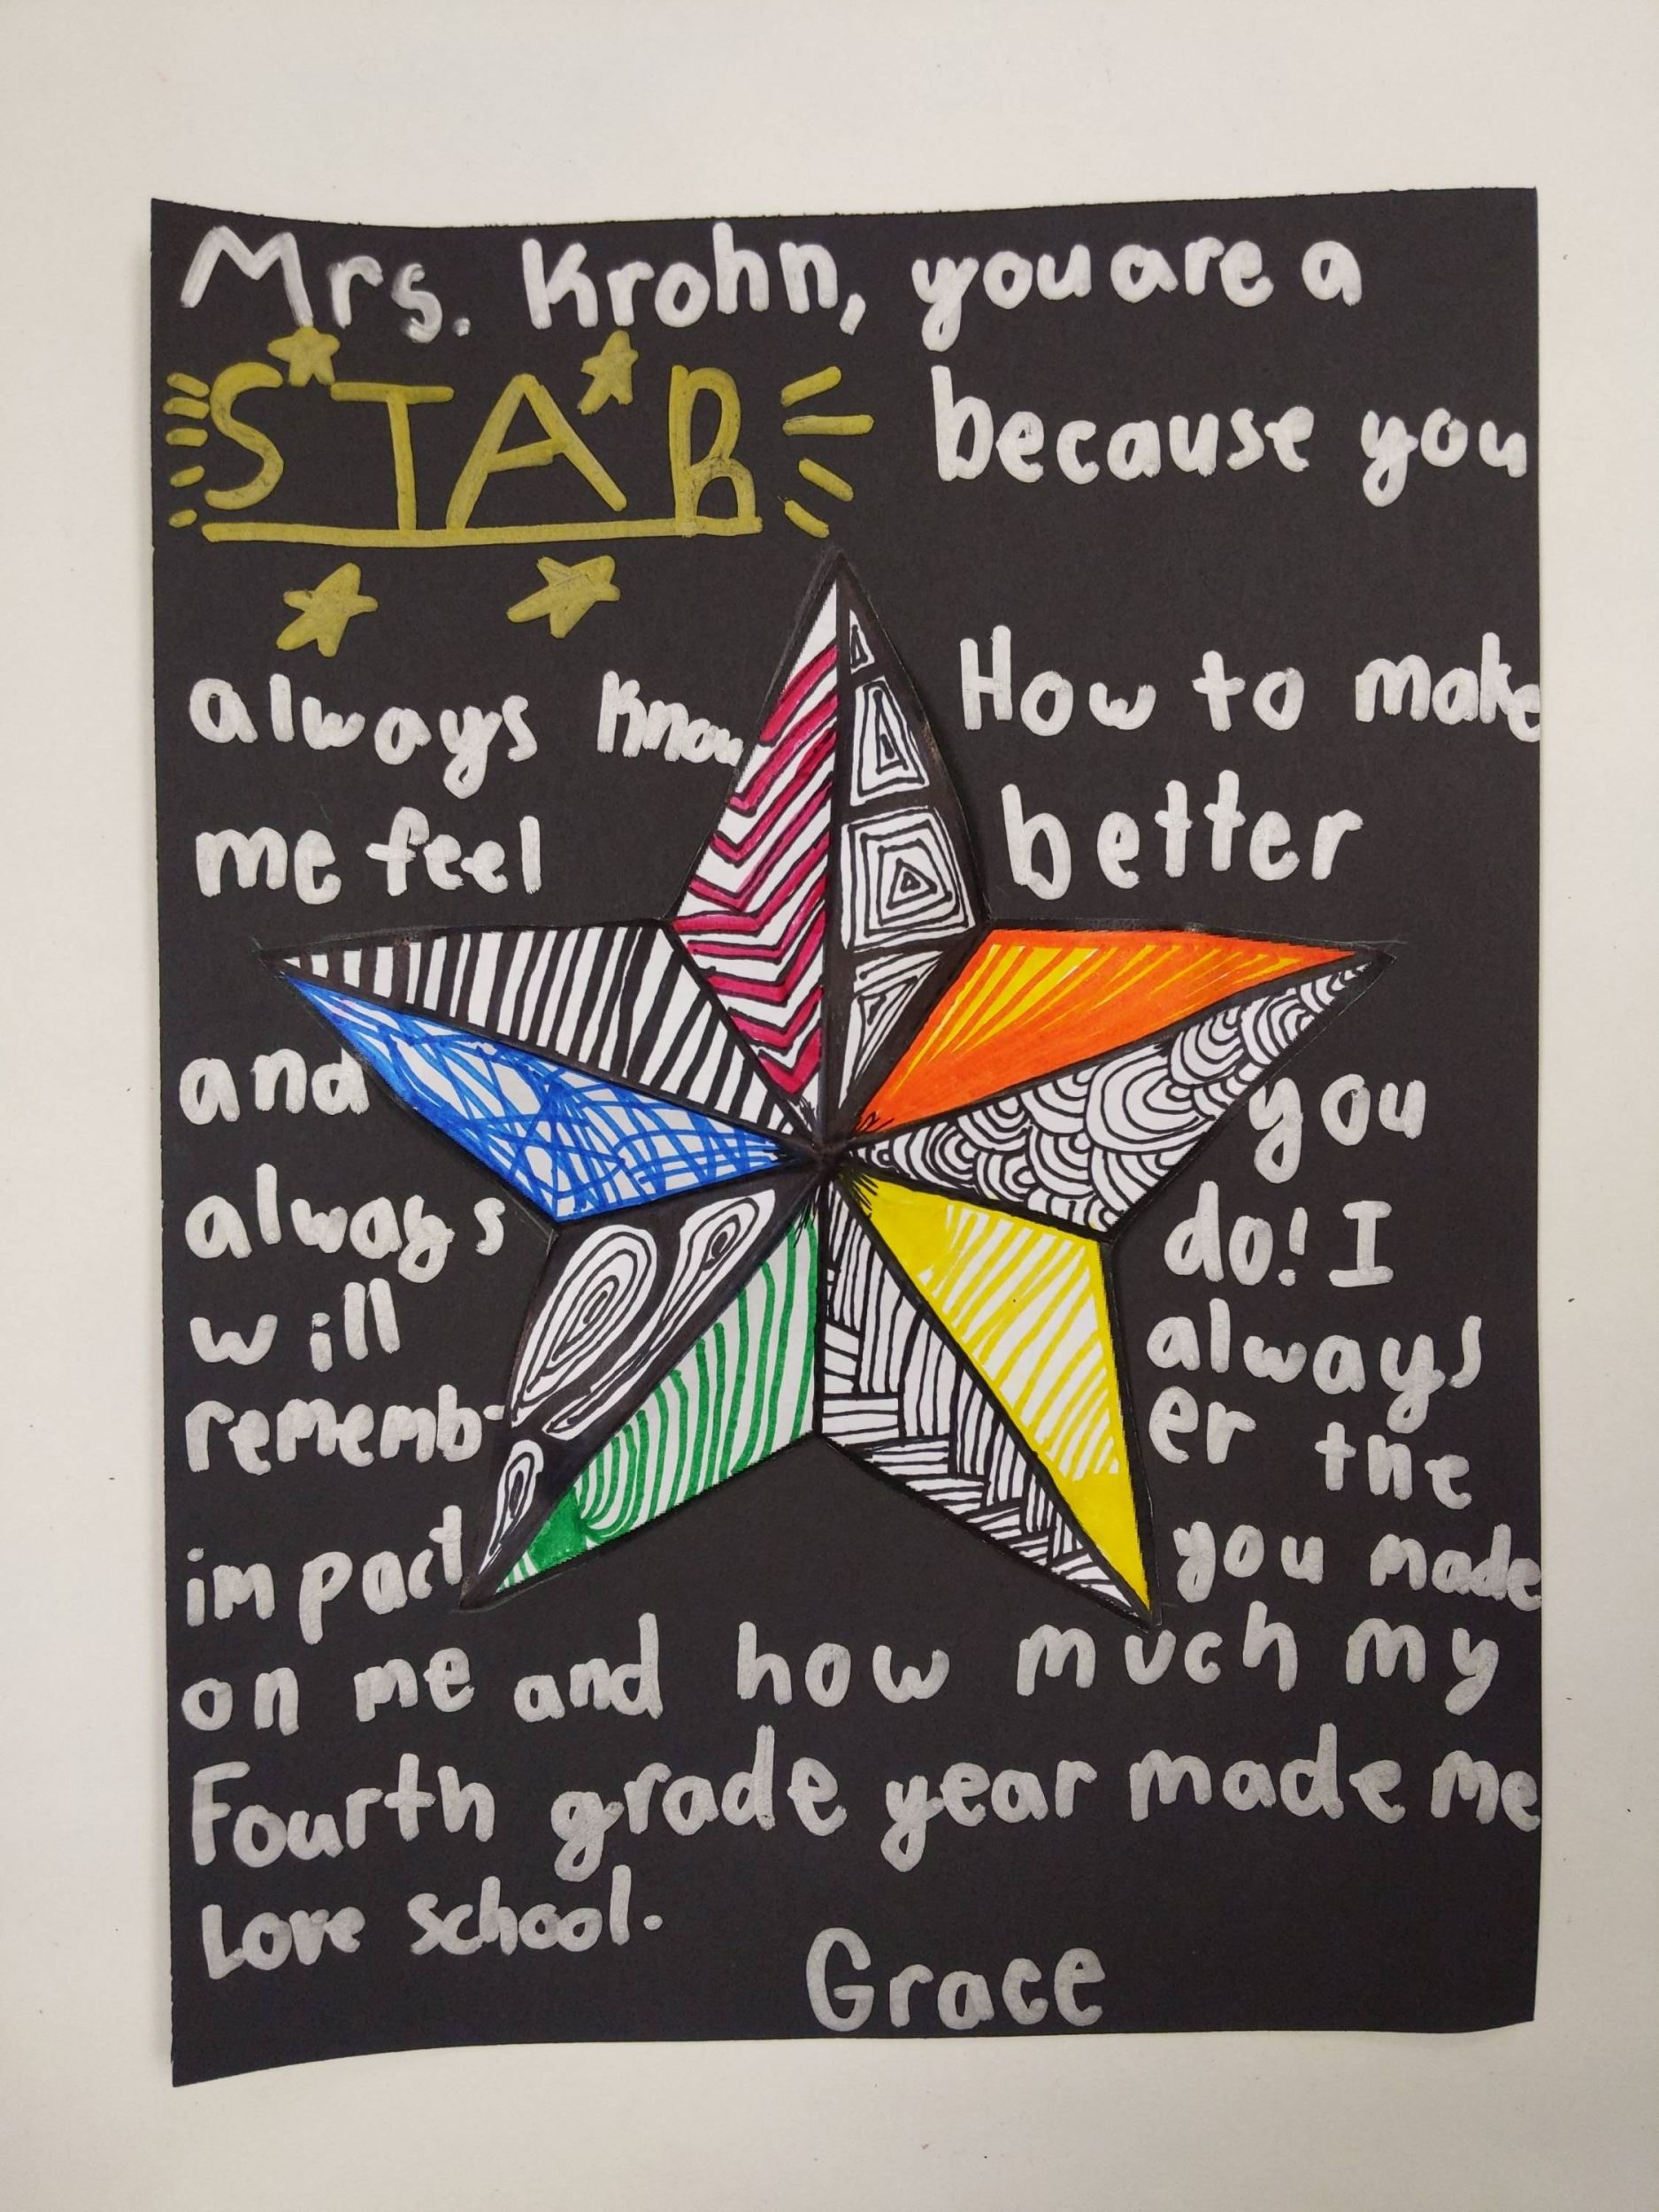 Mrs. Krohn, you are a
STAR because you
always know How to make
me feel better
and you
always do! I
will always
rememb- er the
impact you made
on me and how much my
Fourth grade year made me
Love school.
Grace